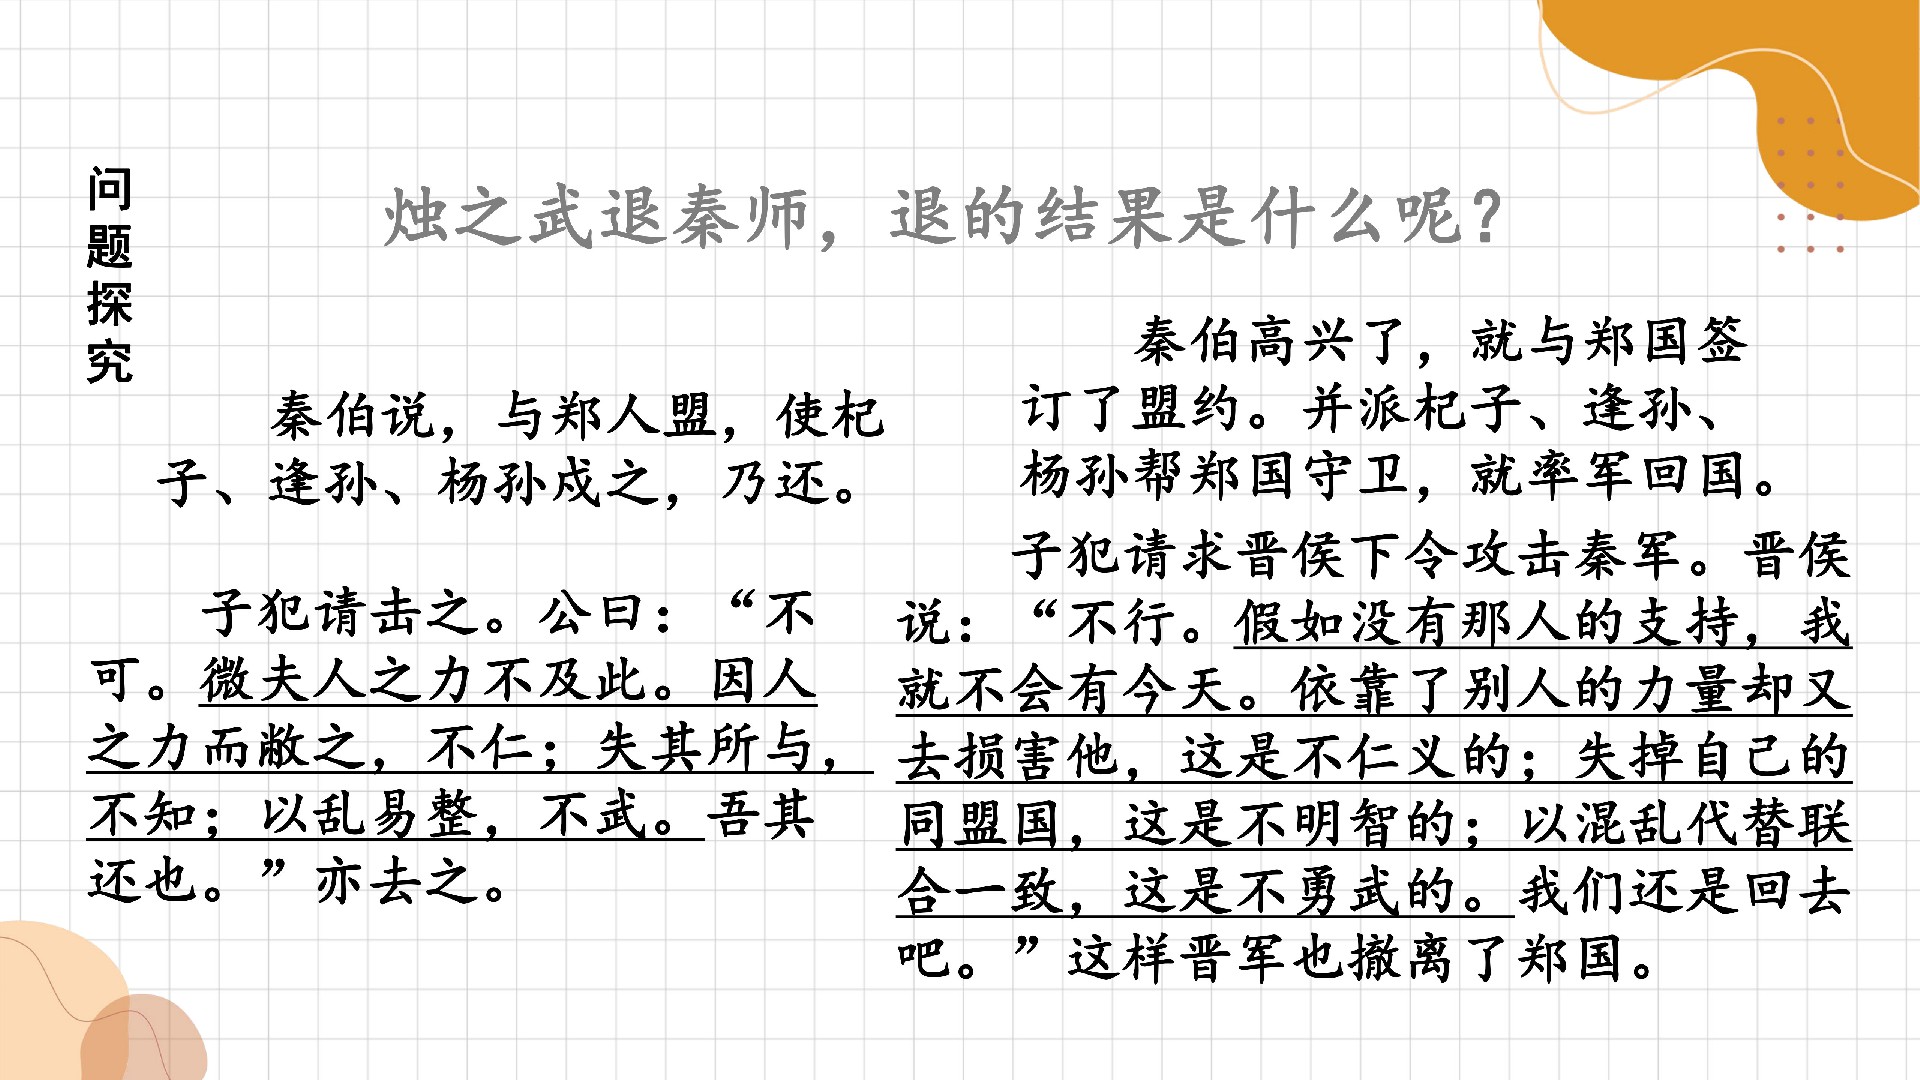 问题探究
烛之武退秦师，退的结果是什么呢？
秦伯说，与郑人盟，使杞
子、逢孙、杨孙戍之，乃还。
子犯请击之。公曰：“不
可。微夫人之力不及此。因人
之力而敝之，不仁；失其所与，
不知；以乱易整，不武。吾其
还也。”亦去之。
秦伯高兴了，就与郑国签
订了盟约。并派杞子、逢孙、
杨孙帮郑国守卫，就率军回国。
子犯请求晋侯下令攻击秦军。晋侯
说：“不行。假如没有那人的支持，我
就不会有今天。依靠了别人的力量却又
去损害他，这是不仁义的；失掉自己的
同盟国，这是不明智的；以混乱代替联
合一致，这是不勇武的。我们还是回去
吧。”这样晋军也撤离了郑国。